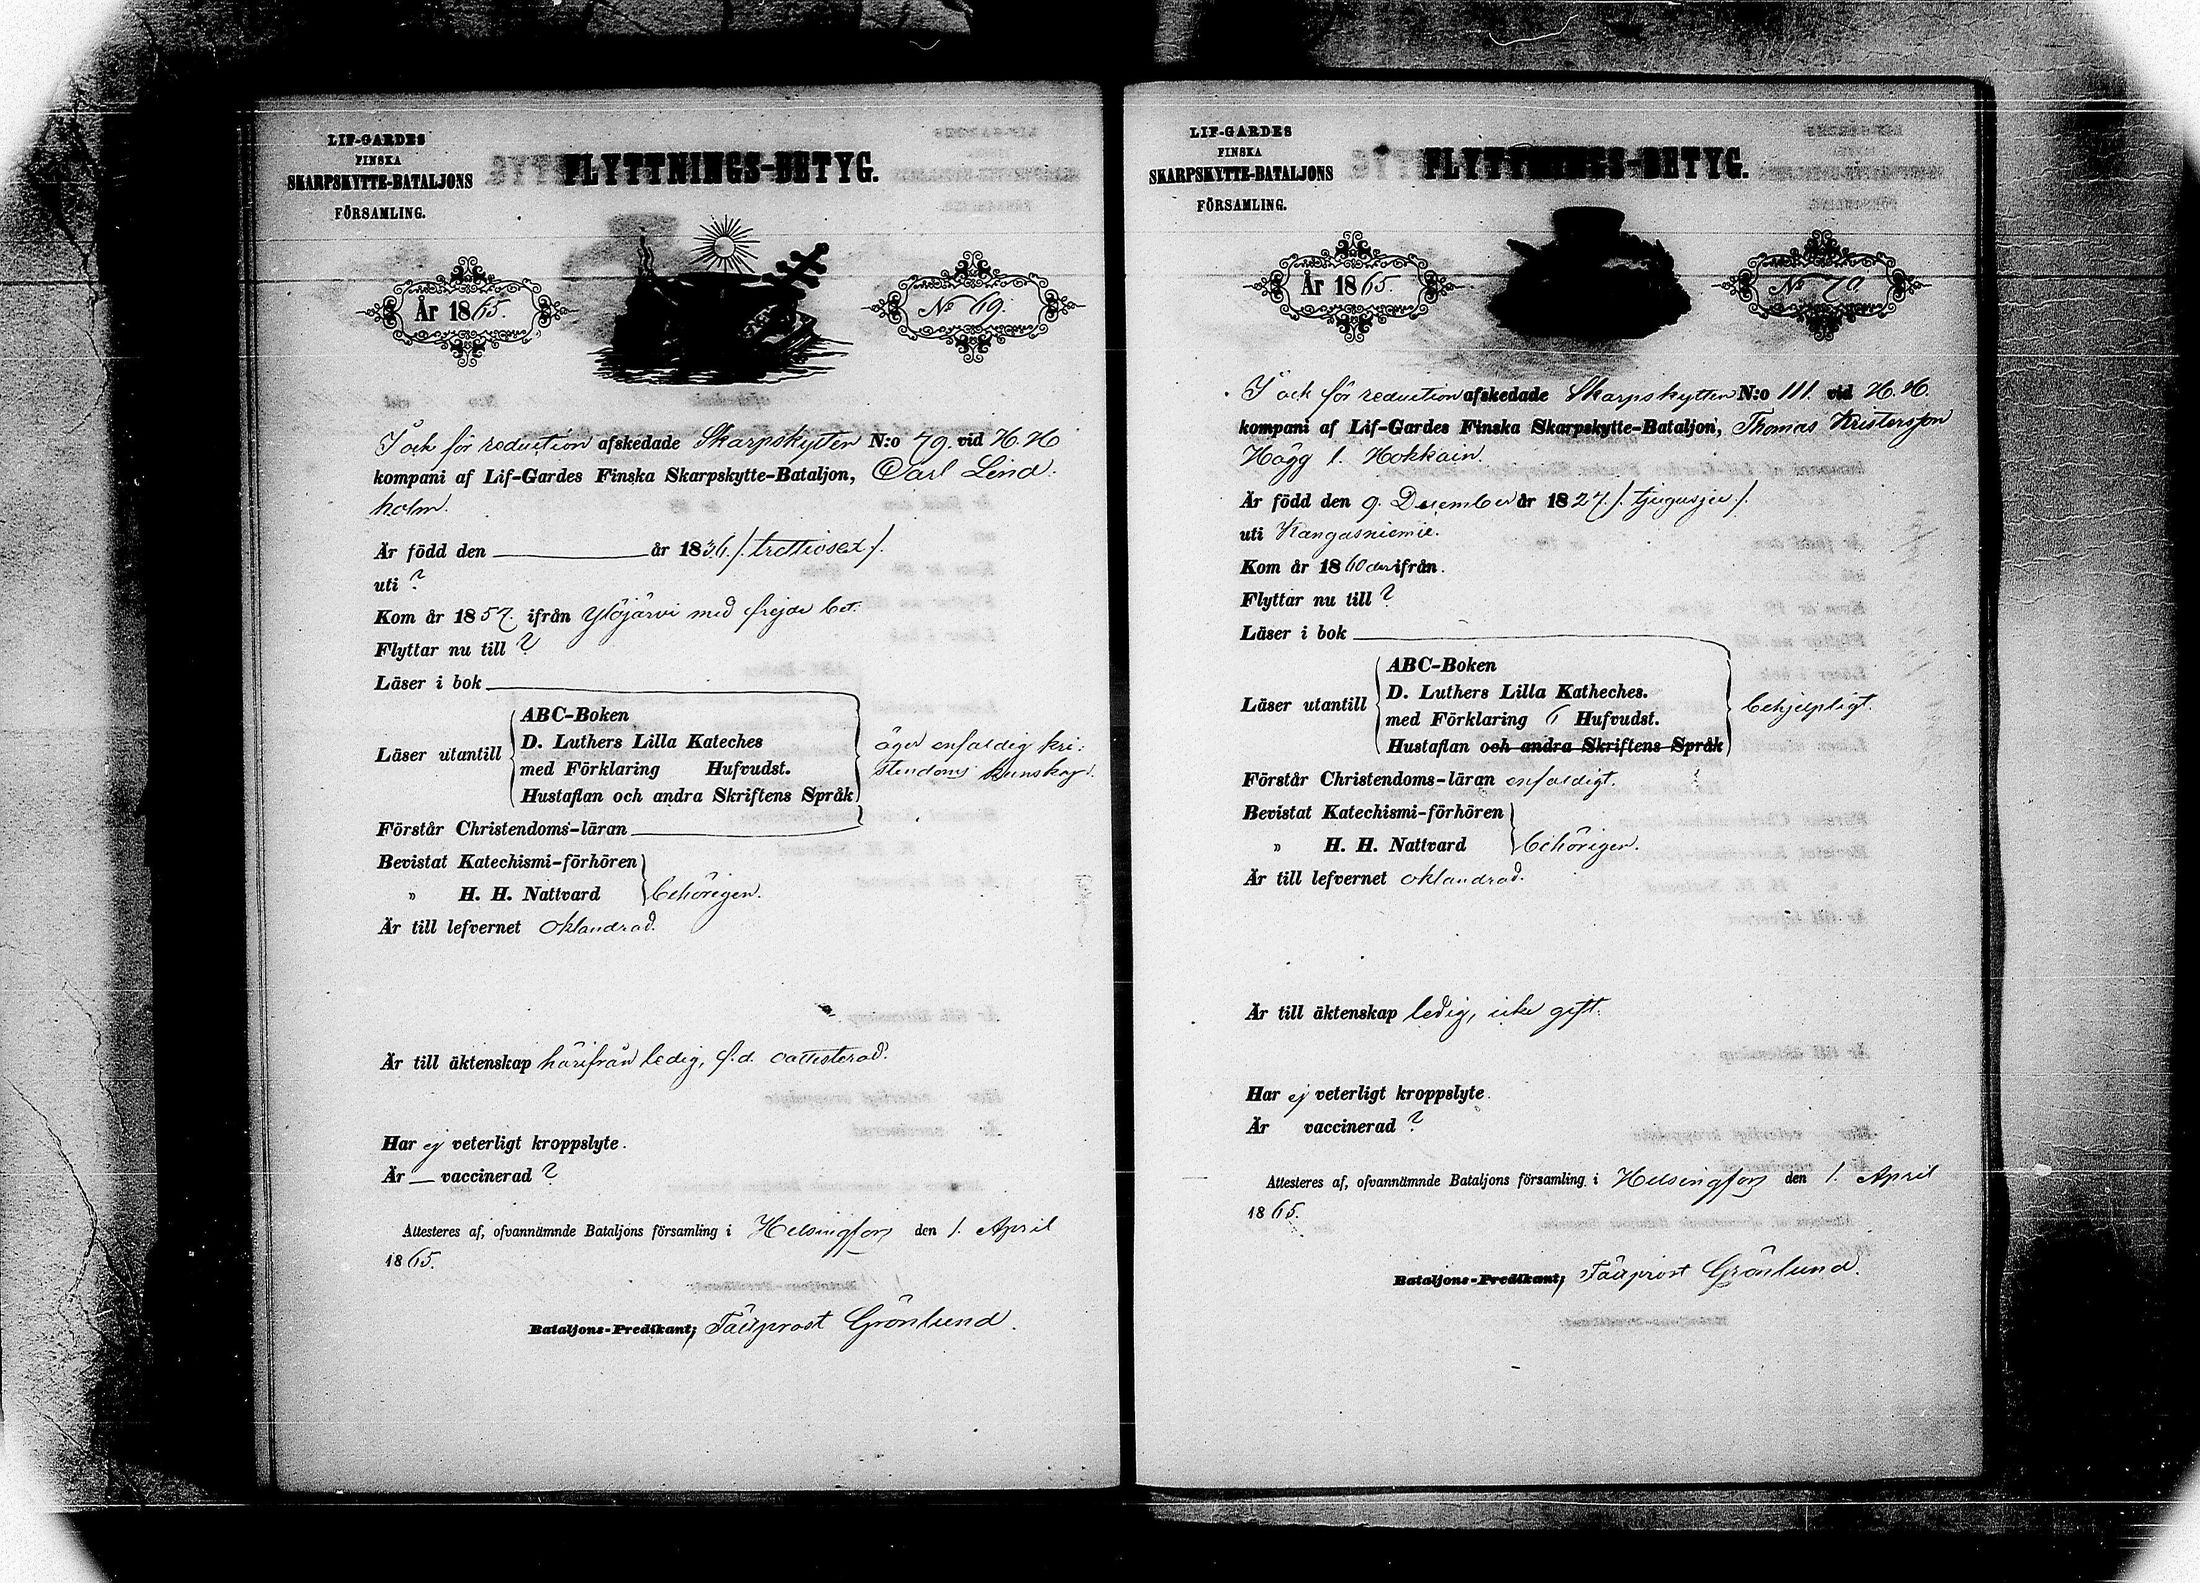 LIF-GARDES
FINSKA
SKARPSKYTTE-BATALJONS
FÖRSAMLING.
FLYTTNINGS-BETYG.
År 1865.
No 69.
I och för reduction afskedade Skarpskytten N:o 79. vid H. H
kompani af Lif-Gardes Finska Skarpskytte-Bataljon, Carl Lind
holm.
Är född den år 1836 /: trettiosex /.
uti ?
Kom år 1857. ifrån Ylöjärvi med frejde bet.
Flyttar nu till ?
Läser i bok
Läser utantill
ABC-Boken
D. Luthers Lilla Kateches
med Förklaring Hufvudst.
Hustaflan och andra Skriftens Språk
äger enfaldig kri:
stendoms kunskap.
Förstår Christendoms-läran
Bevistat Katechismi-förhören
" H. H. Nattvard
behörigen.
Är till lefvernet oklandrad.
Är till äktenskap härifrån ledig, f.d.
Har ej veterligt kroppslyte.
Är — vaccinerad ?
Attesteres af, ofvannämnde Bataljons församling i Helsingfors den 1. April
1865.
Bataljons-Predikant, Fältprost Grönlund.
LIF-GARDES
FINSKA
SKARPSKYTTE-BATALJONS
FÖRSAMLING.
FLYTTNINGS-BETYG.
År 1865.
No 70
I och för reduction afskedade Skarpskytten N:o 111. vid H. H.
kompani af Lif-Gardes Finska Skarpskytte-Bataljon, Thomas Kristersson
Hägg l. Hokkain.
Är född den 9. December år 1827 /. tjugusju /.
uti Kangasniemie.
Kom år 1860 der ifrån.
Flyttar nu till ?
Läser i bok
Läser utantill
ABC-Boken
D. Luthers Lilla Katheches.
med Förklaring 6 Hufvudst.
Hustaflan och andra Skriftens Språk
behjelpligt.
Förstår Christendoms-läran enfaldigt.
Bevistat Katechismi-förhören
" H. H. Nattvard
behörigen.
Är till lefvernet oklandrad.
Är till äktenskap ledig, icke gift.
Har ej veterligt kroppslyte.
Är vaccinerad ?
Attesteres af, ofvannämnde Bataljons församling i Helsingfors den 1. April
1865.
Bataljons-Predikant, Fältprost Grönlund.